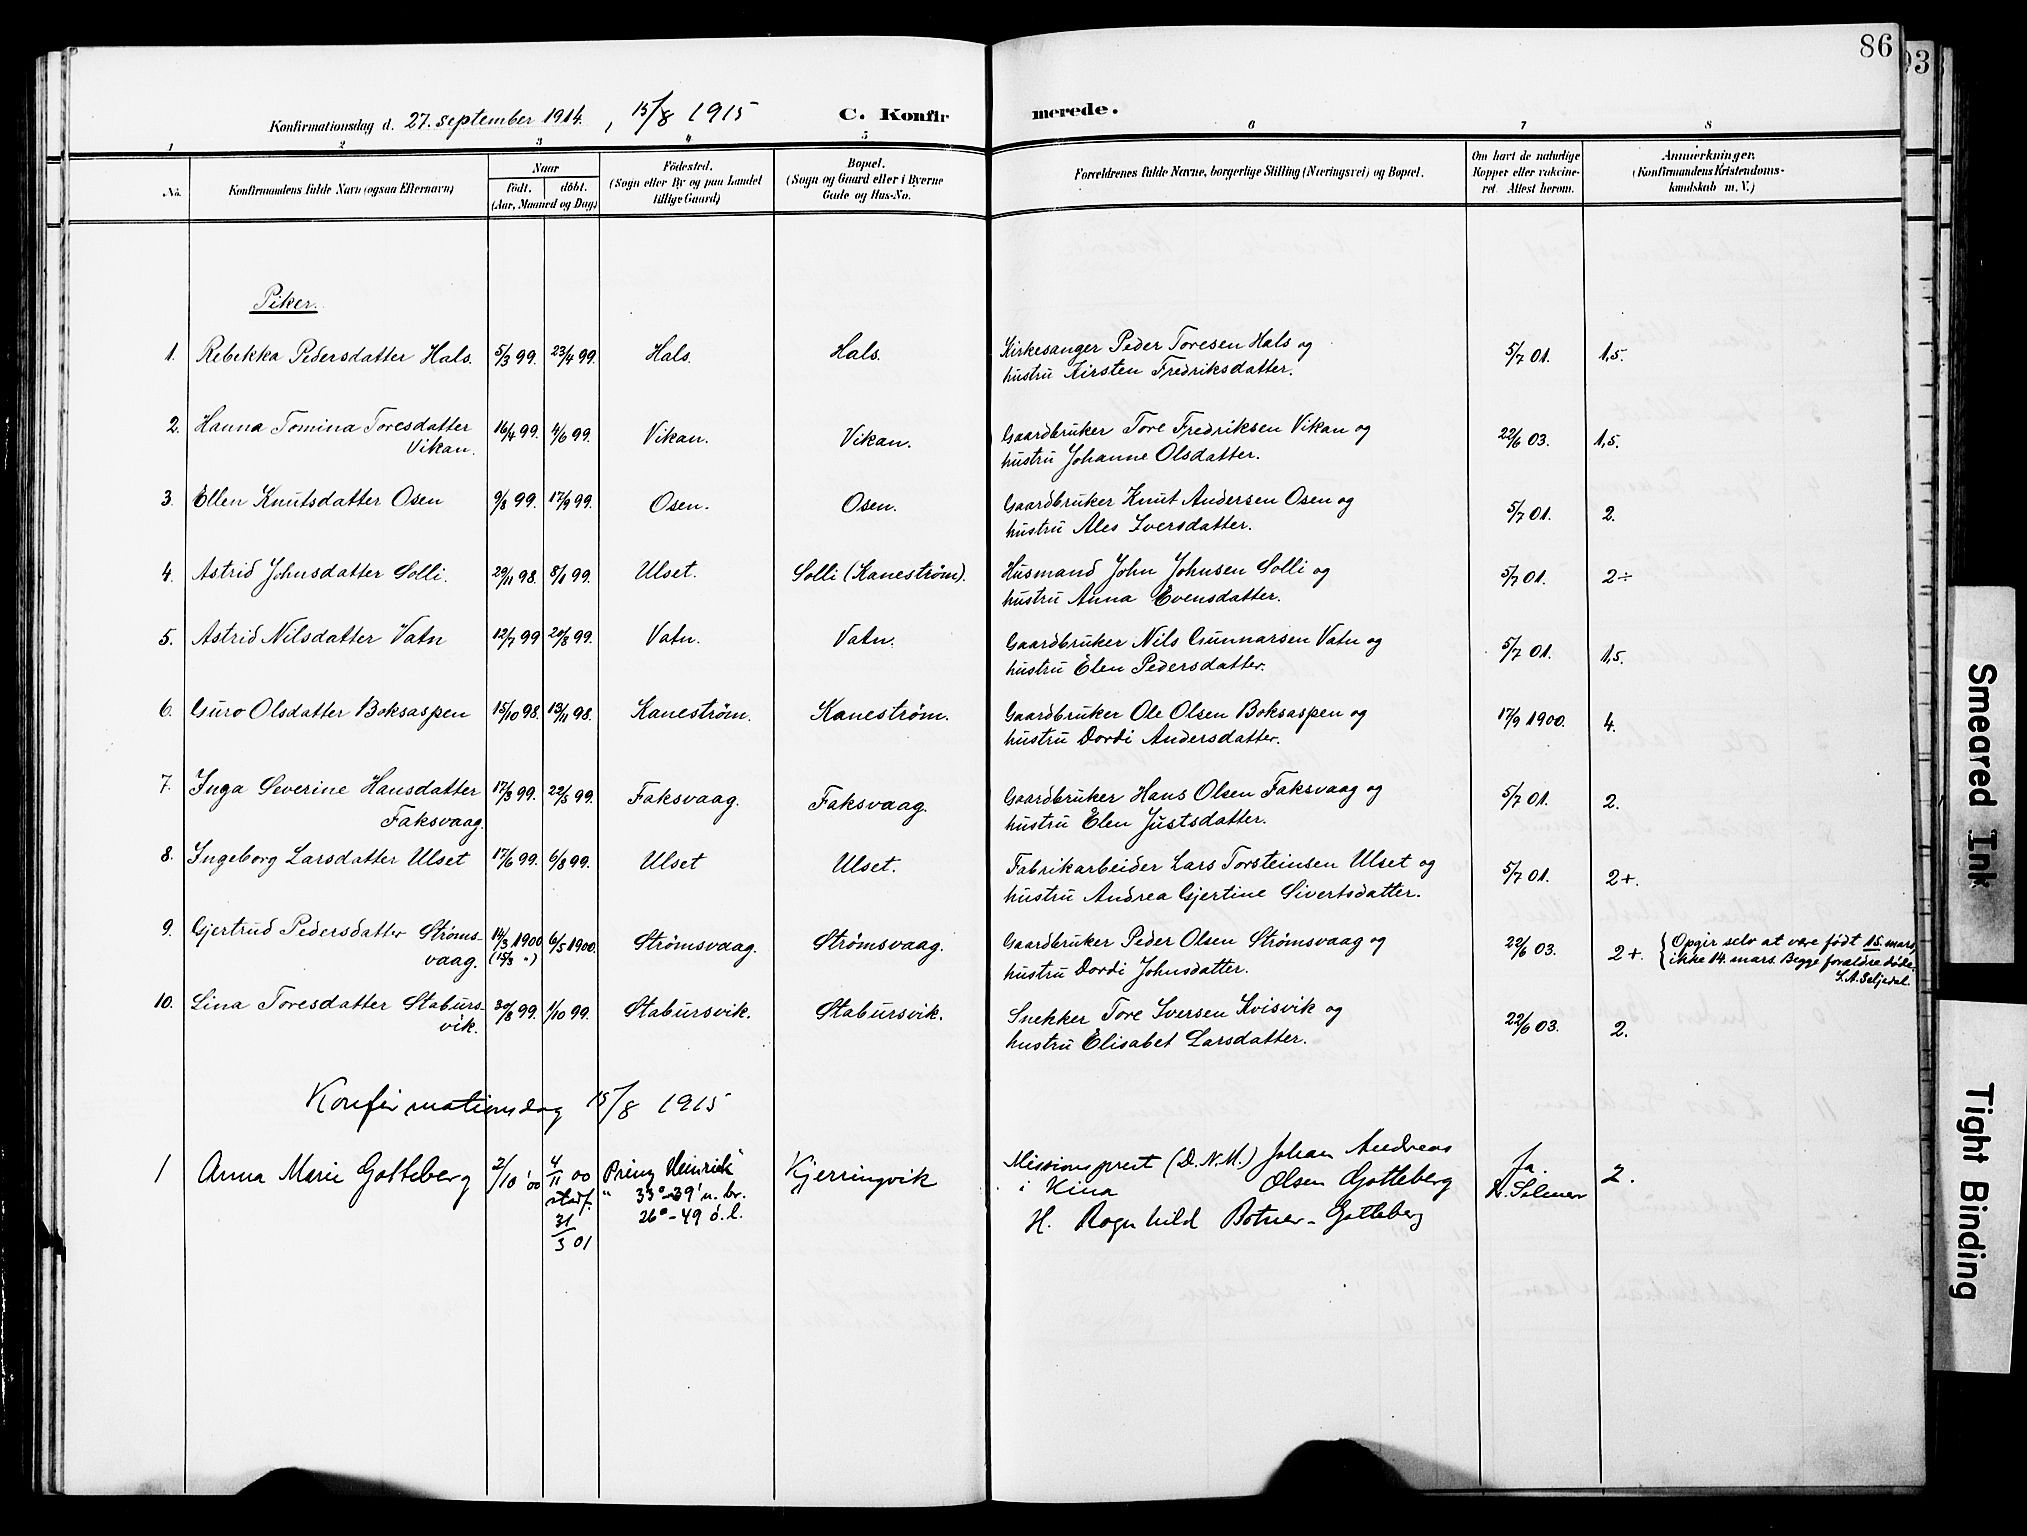 86
93
Konfirmationsdag d. 27. september 1914. , 15/8 1915 C. Konfirmerede.
1 2 3 4 5 6 7 8
No. Konfirmandens fulde Navn (ogsaa Efternavn) Naar födt. döbt. (Aar, Maaned og Dag) Födested. (Sogn eller By og paa Landet tillige Gaard) Bopæl. (Sogn og Gaard eller i Byerne Gade og Hus-No. Forældrenes fulde Navne, borgerlige Stilling (Næringsvei) og Bopæl. Om havt de naturlige Kopper eller vakcineret. Attest herom. Anmærkninger, (Konfirmandens Kristendomskundskab m. V.)
Piker.
1. Rebekka Pedersdatter Hals. 5/3 99. 23/4 99. Hals. Hals. Kirkesanger Peder Toresen Hals og 5/7 01. 1,5.
hustru Kirsten Fredriksdatter.
2. Hanna Tomina Toresdatter 16/4 99. 4/6 99. Vikan. Vikan. Gaardbruker Tore Fredriksen Vikan og 22/6 03. 1,5.
Vikan. hustru Johanne Olsdatter.
3. Ellen Knutsdatter Osen 9/8 99. 17/9 99. Osen. Osen. Gaardbruker Knut Andersen Osen og 5/7 01. 2.
hustru Ales Iversdatter.
4. Astrid Johnsdatter Solli. 29/11 98. 8/1 99. Ulset. Solli (Kanestrøm). Husmand John Johnsen Solli og 5/7 01. 2÷
hustru Anna Evensdatter.
5. Astrid Nilsdatter Vatn 12/7 99 20/8 99. Vatn. Vatn. Gaardbruker Nils Gunnarsen Vatn og 5/7 01. 1,5.
hustru Elen Pedersdatter.
6. Guro Olsdatter Boksaspen 15/10 98. 13/11 98. Kanestrøm. Kanestrøm. Gaardbruker Ole Olsen Boksaspen og 17/9 1900. 4.
hustru Dordi Andersdatter.
7. Inga Severine Hansdatter 17/3 99. 22/5 99. Faksvaag. Faksvaag. Gaardbruker Hans Olsen Faksvaag og 5/7 01. 2.
Faksvaag. hustru Elen Justsdatter.
8. Ingeborg Larsdatter Ulset 17/6 99. 6/8 99. Ulset Ulset. Fabrikarbeider Lars Torsteinsen Ulset og 5/7 01. 2+.
hustru Andrea Gjertine Sivertsdatter.
9. Gjertrud Pedersdatter Strøms- 14/3 1900 6/5 1900. Strømsvaag. Strømsvaag. Gaardbruker Peder Olsen Strømsvaag og 22/6 03. 2+. { Opgir selv at være født 15. mars,
vaag. (15/3 ") hustru Dordi Johnsdatter. ikke 14. mars. Begge forældre døde.
S. A. Seljedal.
10. Lina Toresdatter Stabursvik. 30/8 99. 1/10 99. Stabursvik. Stabursvik. Snekker Tore Iversen Kvisvik og 22/6 03. 2.
hustru Elisabet Larsdatter.
Konfirmationsdag 15/8 1915
1 Anna Marie Gotteberg 2/10 '00 4/11 00 "Prinz Heinrich" Kjerringvik Missionsprest (D.N.M.) Johan Andreas Ja. 2.
stadf. 33° - 39' n. br. i Kina Olsen Gotteberg
31/3 01 26° - 49 ö. l. H. Ragnhild Botner-Gotteberg
Smeared Ink
Tight Binding